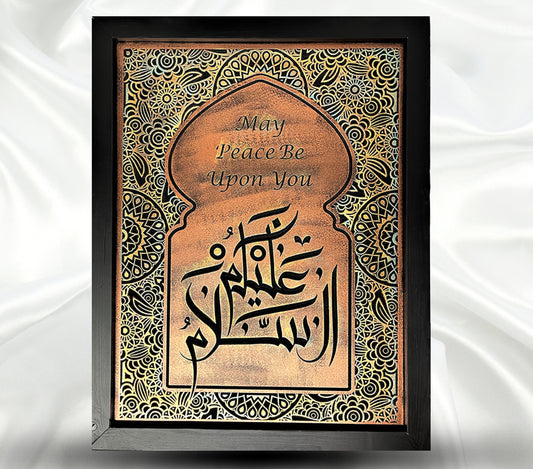 May
Peace Be
Upon You
السلام عليكم